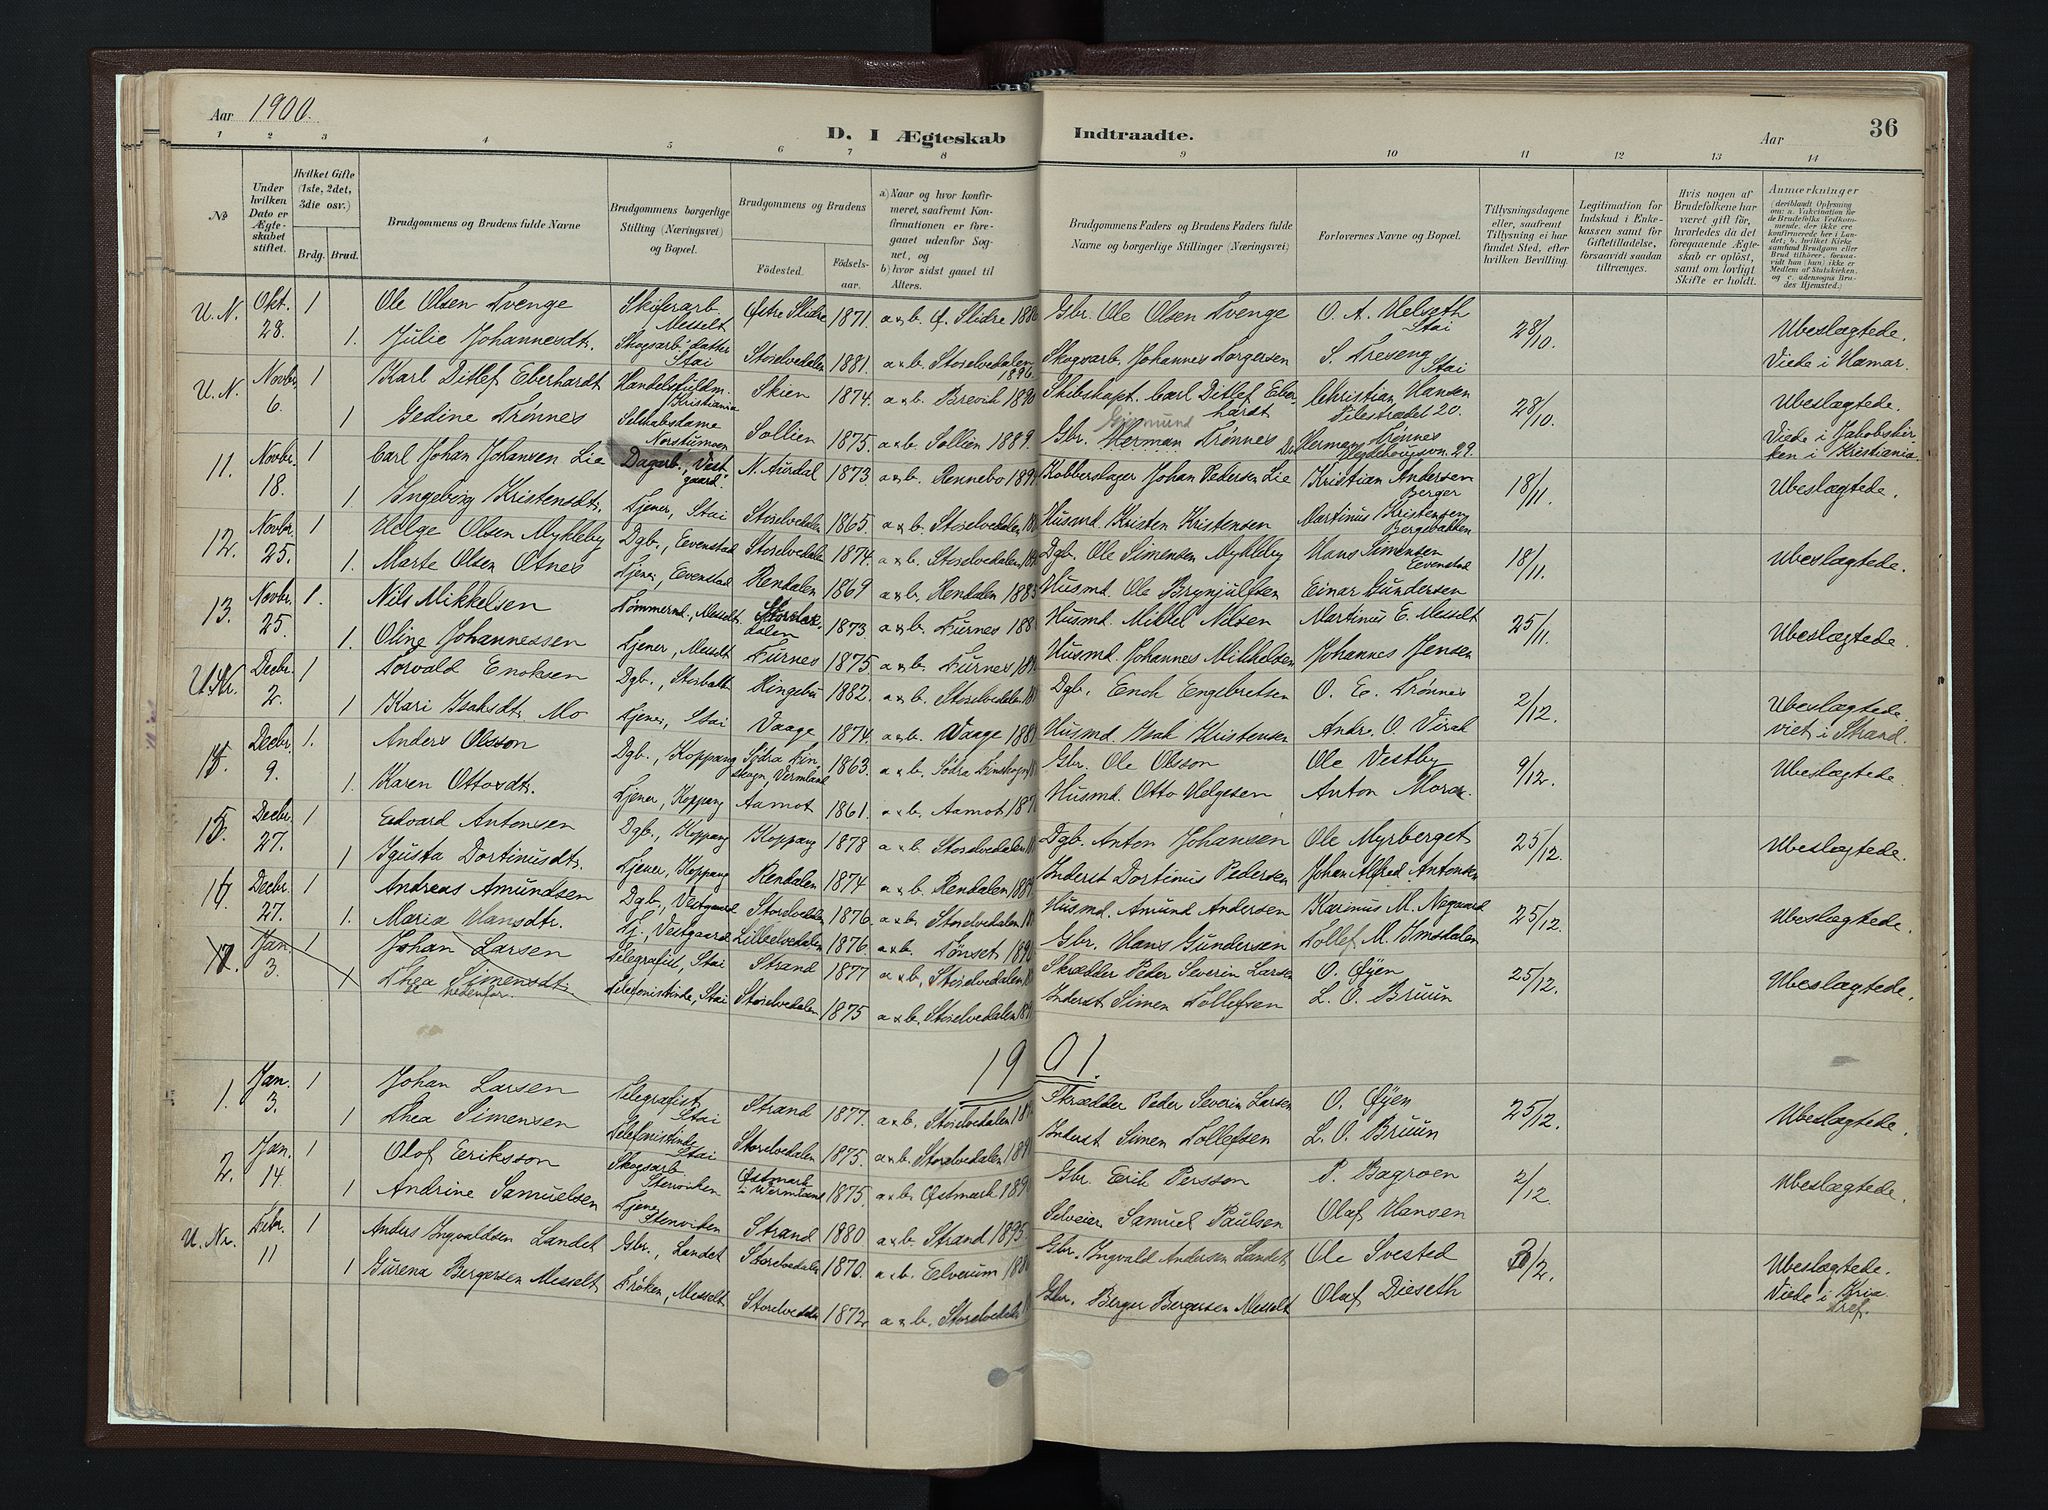 Aar 1900.
D. I Ægteskab Indtraadte.
Aar
36
1 2 3 4 5 6 7 8 9 10 11 12 13 14
№
Under hvilken Dato er Ægteskabet stiftet.
Hvilket Gifte (1ste, 2det, 3die osv.)
Brdg. Brud.
Brudgommens og Brudens fulde Navne
Brudgommens borgerlige Stilling (Næringsvei) og Bopæl.
Brudgommens og Brudens
Födested. Födselsaar.
a) Naar og hvor konfirmeret, saafremt Konfirmationen er foregaaet udenfor Sognet, og
b) hvor sidst gaaet til Alters.
Brudgommens Faders og Brudens Faders fulde Navne og borgerlige Stillinger (Næringsvei)
Forlovernes Navne og Bopæl.
Tillysningsdagene eller, saafremt Tillysning ei har fundet Sted, efter hvilken Bevilling.
Legitimation for Indskud i Enkekassen samt for Giftetilladelse, forsaavidt saadan tiltrænges.
Hvis nogen af Brudefolkene har været gift för, hvorledes da det foregaaende Ægteskab er oplöst, samt om lovligt Skifte er holdt.
Anmærkninger (deriblandt Oplysning om: a. Vakcination for de Brudefolks Vedkommende, der ikke ere konfirmerede her i Landet; b. hvilket Kirkesamfund Brudgom eller Brud tilhörer, forsaavidt han (hun) ikke er Medlem af Statskirken, og c. udensogns Brudes Hjemsted.)
U. N. Okt. 28. 1 Ole Olsen Tvenge Skiferarb. Messelt Østre Slidre 1871. a & b. Ø. Slidre 1886 Gbr. Ole Olsen Tvenge O. A. Helseth Stai 28/10. Ubeslægtede
1. Julie Johannesdt. Skogsarb. datter Stai Storelvedalen 1881. a & b. Storelvedalen 1896. Skogsarb. Johannes Torgersen S. Treseng Stai Viede i Hamar.
U. N. Novbr. 6. 1 Karl Ditlef Eberhardt Handelsfuldm. Kristiania Skien 1874. a & b. Brevik 1890 Skibskapt. Carl Ditlef Eberhardt Christian Hansen Pilestrædet 20. 28/10. Ubeslægtede.
1 Gedine Trønnes Selskabsdame Norstumoen Sollien 1875. a & b. Sollien 1889. Gbr. Herman Trønnes Hermans Trønnes 29. Viede i Jakobskirken i Kristiania.
11. Novbr. 18. 1 Carl Johan Johansen Lie Dagarb., Vestgaard N. Aurdal 1873. a & b. Rennebo Kobberslager Johan Pedersen Lie Kristian Andersen Berger 18/11. Ubeslægtede.
1. Ingeborg Kristensdt. Tjener, Stai Storelvedalen 1865. a & b. Storelvedalen Husmd. Kristen Kristensen Martinus Kristensen Bergebakken
12. Novbr. 25. 1 Helge Olsen Mykleby Dgb., Evenstad Storelvedalen 1874. a & b. Storelvedalen Dgb. Ole Simensen Mykleby Hans Simensen Evenstad 18/11. Ubeslægtede.
1. Marte Olsen Otnes Tjener, Evenstad Rendalen 1869 a & b. Rendalen 1885 Husmd. Ole Brynjulfsen Einar Gundersen
13. Novbr. 25. 1. Nils Mikkelsen Tømmermd., Messelt 1873 a & b. Furnes Husmd. Mikkel Nilsen Martinus E. Messelt 25/11. Ubeslægtede.
1. Oline Johannessen Tjener, Messelt Furnes 1875. a & b. Furnes Husmd. Johannes Mikkelsen Johannes Jensen
U. Nr. Decbr. 2. 1 Torvald Enoksen Dgb., Ringebu 1882. a & b. Storelvedalen Dgb. Enok Engebretsen O. E. Trønnes 2/12. Ubeslægtede
1 Kari Isaksdt. Mo Tjener, Stai Vaage 1874. a & b. Vaage Husmd. Isak Kristensen Andr. O. Virak viet i Strand.
15. Decbr. 9. 1. Anders Olsson Dgb., Koppang Södra Finskogn, Vermland 1863. a & b. Södra Finskogn Gbr. Ole Olsson Ole Vestby 9/12. Ubeslægtede
1. Karen Ottosdt. Tjener, Koppang Aamot 1861. a & b. Aamot Husmd. Otto Helgesen Anton Mora
15. Decbr. 27. 1 Edvard Antonsen Dgb., Koppang Koppang 1878 a & b. Storelvedalen Dgb. Anton Johansen Ole Myrberget 25/12. Ubeslægtede.
1 Igusta Dortinusdt. Tjener, Koppang Rendalen 1874 a & b. Rendalen Inderst Dortinus Pedersen Johan Alfred Antonsen
16. Decbr. 27. 1 Andreas Amundsen Dgb., Vestgaard Storelvedalen 1876. a & b. Storelvedalen Husmd. Amund Andersen Karinus M. Negaard 25/12. Ubeslægtede.
1. Maria Hansdtr. Tj., Vestgaard Lilleelvedalen 1876. a & b. Tönset 1890 Gbr. Hans Gundersen Tollef M. Imsdalen
17. Jan 3. 1 Johan Larsen Telegrafist, Stai Strand 1877 a & b. Storelvedalen Skrædder Peder Severin Larsen O. Øyen 25/12. Ubeslægtede.
1 Thea Simensdt. Telefonistinde, Stai Storelvedalen 1875 a & b. Storelvedalen Inderst Simen Tollefsen L. O. Bruun
se nedenfor.
1901.
1. Jan. 3. 1 Johan Larsen Telegrafist Stai Strand 1877. a & b. Storelvedalen Skrædder Peder Severin Larsen O. Øyen 25/12. Ubeslægtede.
1 Thea Simensen Telefonistinde Stai Storelvedalen 1875. a & b. Storelvedalen Inderst Simen Tollefsen L. O. Bruun
2. Jan. 14. 1 Olof Eriksson Skogsarb. Stenviken Östmark i Wermland 1875. a & b. Östmark 1890 Gbr. Erik Persson P. Bagroen 2/12. Ubeslægtede.
1 Andrine Samuelsen Tjener Stenviken Strand 1880 a & b. Strand 1895. Selveier Samuel Paulsen Olaf Hansen
U. Nr. Febr. 11 1 Anders Ingvaldsen Landet Gbr., Landet Storelvedalen 1870. a & b. Elverum Gbr. Ingvald Andersen Landet Ole Svested 3/2. Ubeslægtede.
1 Gurena Bergersen Messelt Frøken, Messelt Storelvedalen 1872 a & b. Storelvedalen Gbr. Berger Bergersen Messelt Olaf Dieseth Viede i Kria